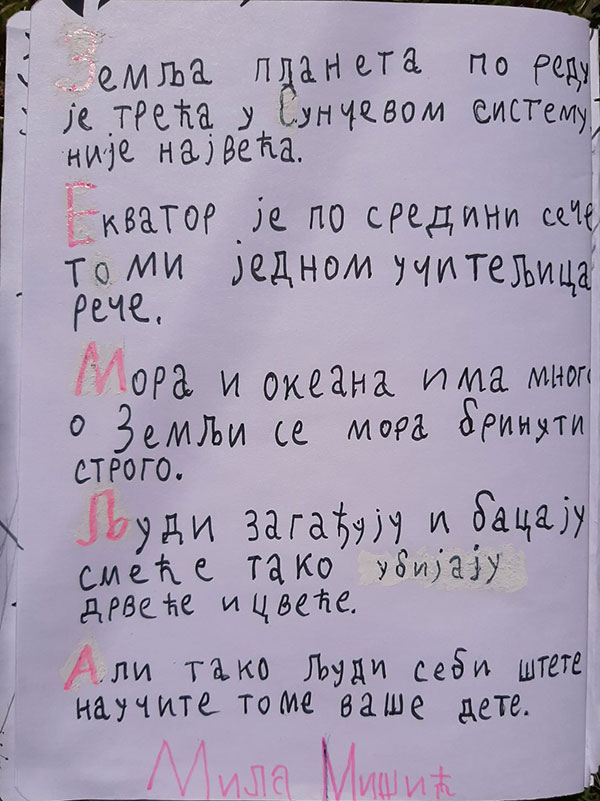 Земља планета по реду
је трећа у Сунчевом систему
није највећа.
Екватор је по средини сече
то ми једном учитељица
рече.
Мора и океана има много
о Земљи се мора бринути
строго.
Људи загађују и бацају
смеће тако убијају
дрвеће и цвеће.
Али тако људи себи штете
научите томе ваше дете.
Мила Мишић